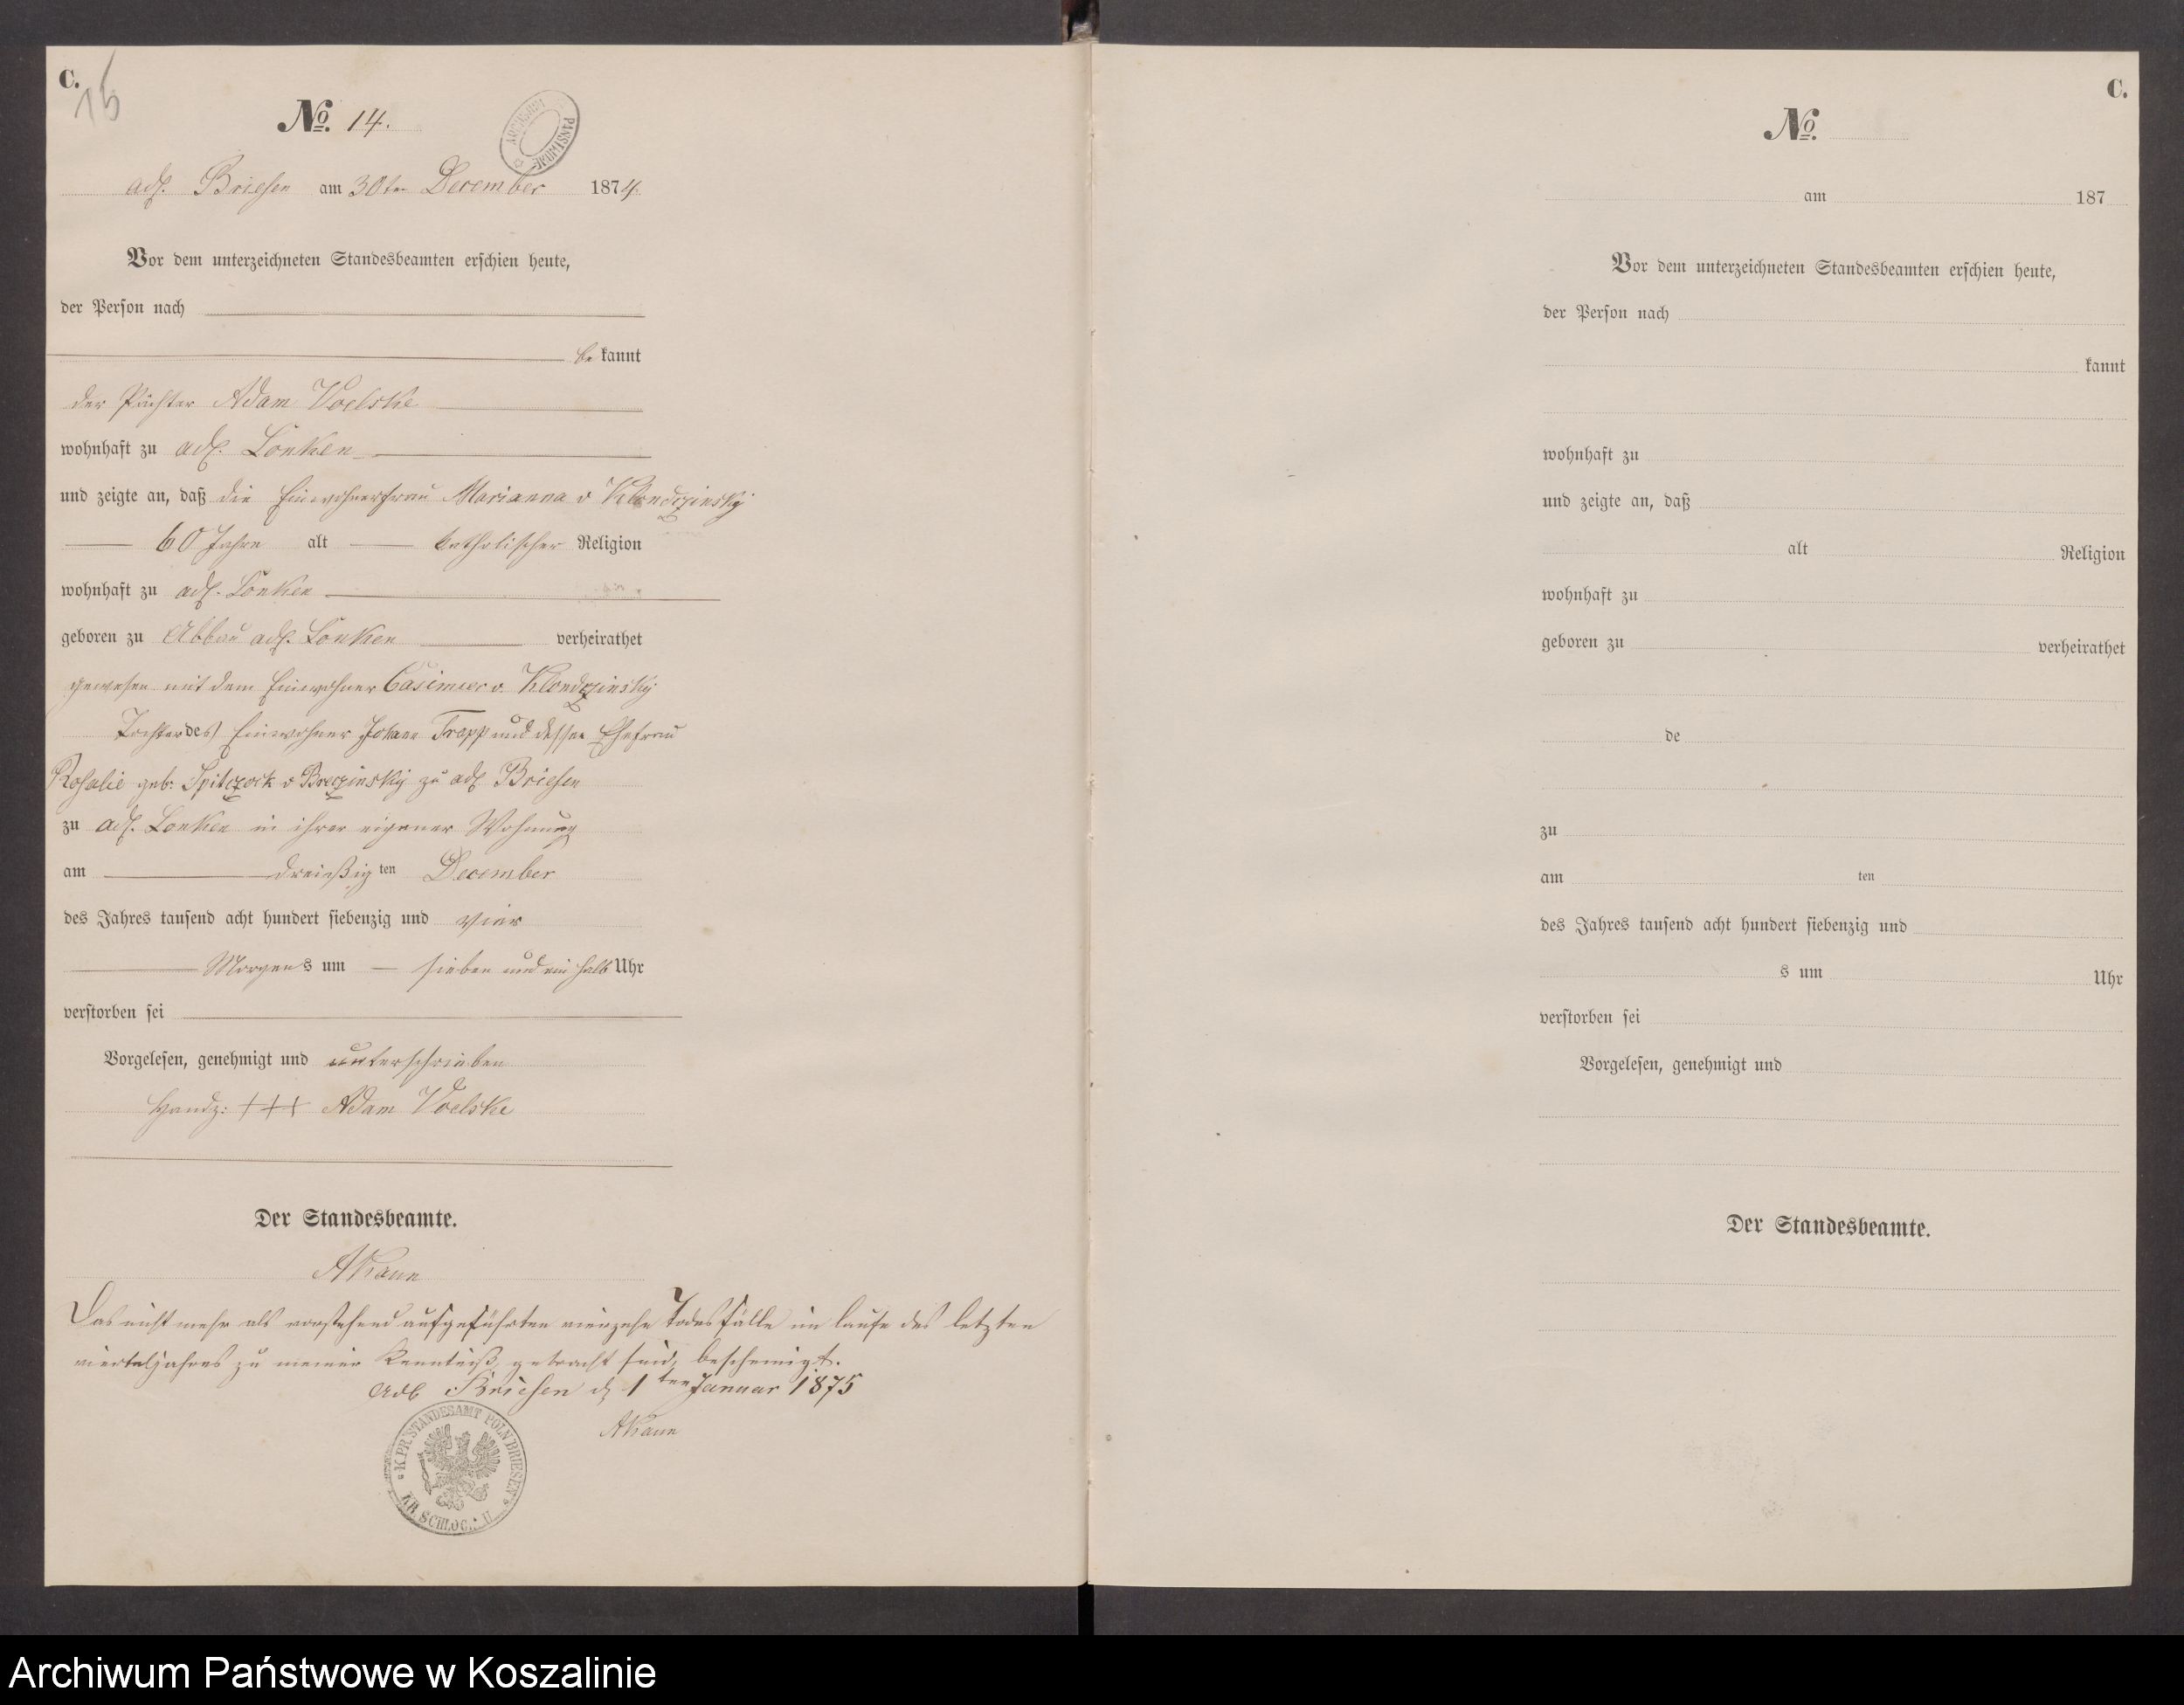 C.
15
No. 14.
ARCHIWUM PAŃSTWOWE
adl. Briesen am 30ten December 1874.
Vor dem unterzeichneten Standesbeamten erschien heute,
der Person nach
bekannt
der Pächter Adam Voelske
wohnhaft zu adl. Lonken
und zeigte an, daß die Einwohnerfrau Marianna v Klondzinsky
60 Jahre alt katholischer Religion
wohnhaft zu adl. Lonken
geboren zu Abbau adl. Lonken verheirathet
gewesen mit dem Einwohner Casimier v. Klondzinsky
Tochter des Einwohner Johann Trapp und dessen Ehefrau
Rosalie geb: Spitczock v Breczinsky zu adl Briesen
zu adl. Lonken in ihrer eigener Wohnung
am dreißigten December
des Jahres tausend acht hundert siebenzig und vier
Morgens um sieben und ein halb Uhr
verstorben sei
Vorgelesen, genehmigt und unterschrieben
Handz: +++ Adam Voelske
Der Standesbeamte.
Das nicht mehr als vorstehend aufgeführten vierzehn Todesfälle im laufe des letzten
vierteljahres zu meiner Kenntniß gebracht sind, bescheinigt.
Adl Briesen d 1ten Januar 1875
K. PR. STANDESAMT POLN BRIESEN
KR. SCHLOCHAU
C.
No.
am 187
Vor dem unterzeichneten Standesbeamten erschien heute,
der Person nach
kannt
wohnhaft zu
und zeigte an, daß
alt Religion
wohnhaft zu
geboren zu verheirathet
de
zu
am ten
des Jahres tausend acht hundert siebenzig und
s um Uhr
verstorben sei
Vorgelesen, genehmigt und
Der Standesbeamte.
Archiwum Państwowe w Koszalinie